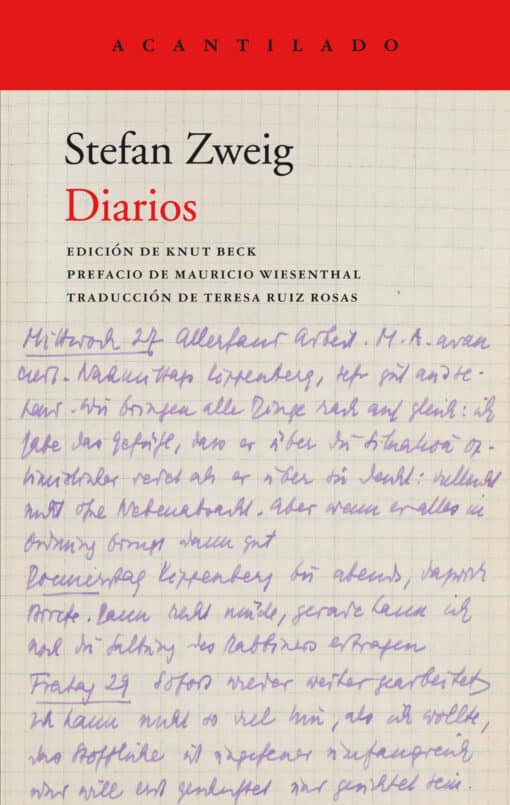 ACANTILADO
Stefan Zweig
Diarios
EDICIÓN DE KNUT BECK
PREFACIO DE MAURICIO WIESENTHAL
TRADUCCIÓN DE TERESA RUIZ ROSAS
Mittwoch 27 Allerhand Arbeit. M. A. avan
ciert. Nachmittags Kippenberg, sehr gut
Wir bringen alle Dinge rasch auf gleich: ich
habe das Gefühl, dass er über die Situation op-
timistischer redet als er über sie denkt: vielleicht
nicht ohne Nebenabsicht. Aber wenn er alles in
Ordnung bringt dann gut
Donnerstag Kippenberg bis abends, danach
Dann recht müde, gerade kann ich
noch die des Rabbiners ertragen
Freitag 29 Sofort wieder weiter gearbeitet
Ich kann nicht so viel tun, als ich wollte,
das Stoffliche ist ungeheuer umfangreich
und will erst und gesichtet sein.